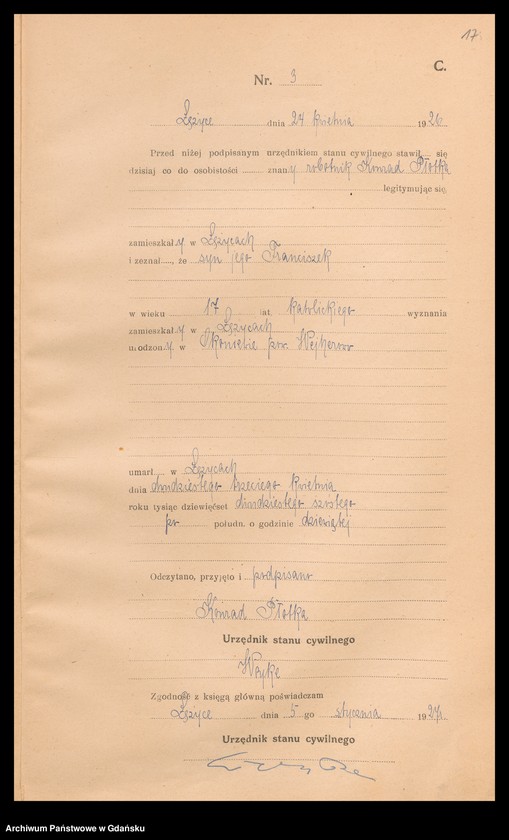 17.
C.
Nr. 3
Łężyce dnia 24 kwietnia 1926
Przed niżej podpisanym urzędnikiem stanu cywilnego stawił się
dzisiaj co do osobistości znany robotnik Konrad Płotka
legitymując się
zamieszkały w Łężycach
i zeznał, że syn jego Franciszek
w wieku 17 lat katolickiego wyznania
zamieszkały w Łężycach
urodzony w pow. Wejherowo
umarł w Łężycach
dnia dwudziestego trzeciego kwietnia
roku tysiąc dziewięćset dwudziestego szóstego
po połudn. o godzinie dziewiątej
Odczytano, przyjęto i podpisano
Konrad Płotka
Urzędnik stanu cywilnego
Zgodność z księgą główną poświadczam
Łężyce dnia 5 go stycznia 1927.
Urzędnik stanu cywilnego
Archiwum Państwowe w Gdańsku